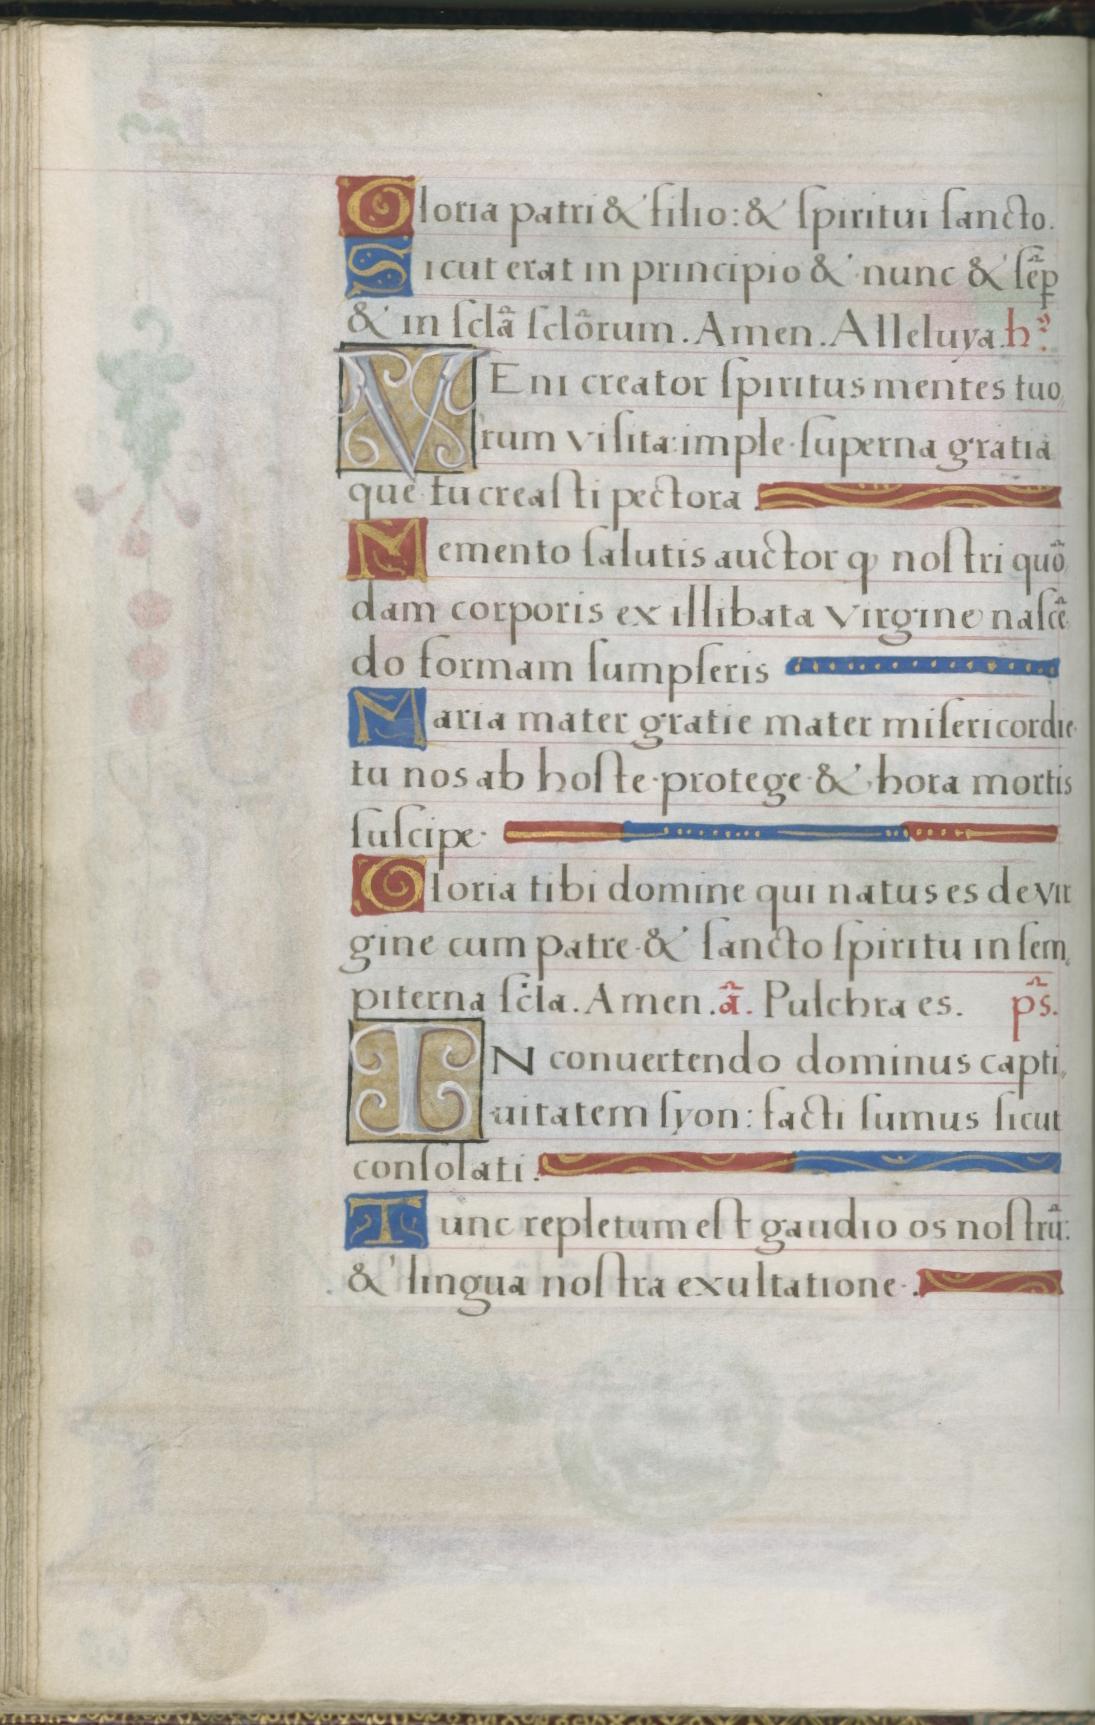 Gloria patri & filio: & ſpiritui ſancto.
Sicut erat in principio & nunc & ſēꝑ
& in ſclā ſclōrum. Amen. Alleluya. hꝰ.
VEni creator ſpiritus mentes tuo,
rum viſita: imple ſuperna gratia
que tu creaſti pectora
Memento ſalutis auctor ꝙ noſtri quō,
dam corporis ex illibata virgine naſcē
do formam ſumpſeris
Maria mater gratie mater miſericordie
tu nos ab hoſte protege & hora mortis
ſuſcipe
Gloria tibi domine qui natus es de vir
gine cum patre & ſancto ſpiritu in ſem,
piterna ſcla. Amen. ā. Pulchra es. pṡ.
IN conuertendo dominus capti,
uitatem ſyon: facti ſumus ſicut
conſolati.
Tunc repletum eſt gaudio os noſtrū:
& lingua noſtra exultatione.